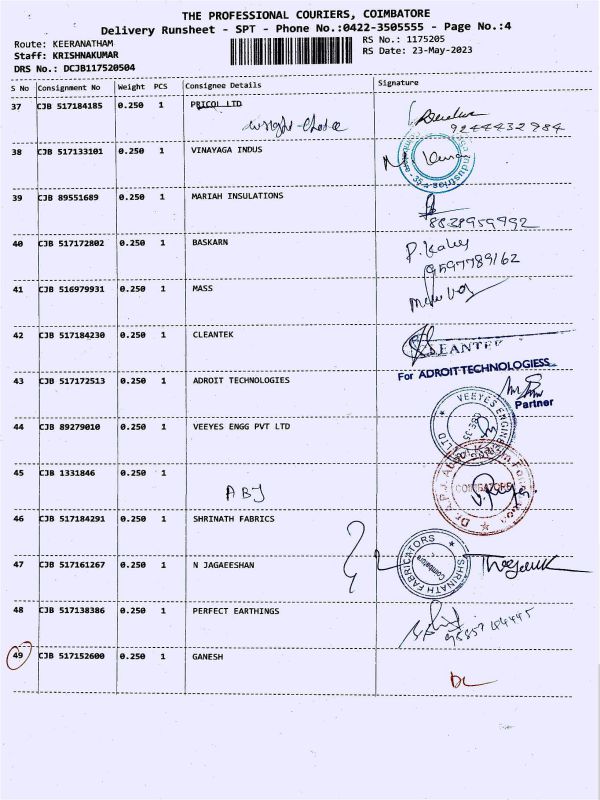 THE PROFESSIONAL COURIERS, COIMBATORE
Delivery Runsheet - SPT - Phone No.:0422-3505555 - Page No.:4
Route: KEERANATHAM RS No.: 1175205
Staff: KRISHNAKUMAR RS Date: 23-May-2023
DRS No.: DCJB117520504
S No Consignment No Weight PCS Consignee Details Signature
37 CJB 517184185 0.250 1 PRICOL LTD
9244432984
38 CJB 517133101 0.250 1 VINAYAGA INDUS
39 CJB 89551689 0.250 1 MARIAH INSULATIONS
8838959992
40 CJB 517172802 0.250 1 BASKARN
9597789162
41 CJB 516979931 0.250 1 MASS
42 CJB 517184230 0.250 1 CLEANTEK
For ADROIT TECHNOLOGIESS
43 CJB 517172513 0.250 1 ADROIT TECHNOLOGIES
Partner
44 CJB 89279010 0.250 1 VEEYES ENGG PVT LTD
45 CJB 1331846 0.250 1
COIMBATORE
46 CJB 517184291 0.250 1 SHRINATH FABRICS
SHRINATH FABRICATORS
Coimbatore
47 CJB 517161267 0.250 1 N JAGAEESHAN
48 CJB 517138386 0.250 1 PERFECT EARTHINGS
49 CJB 517152600 0.250 1 GANESH
DL